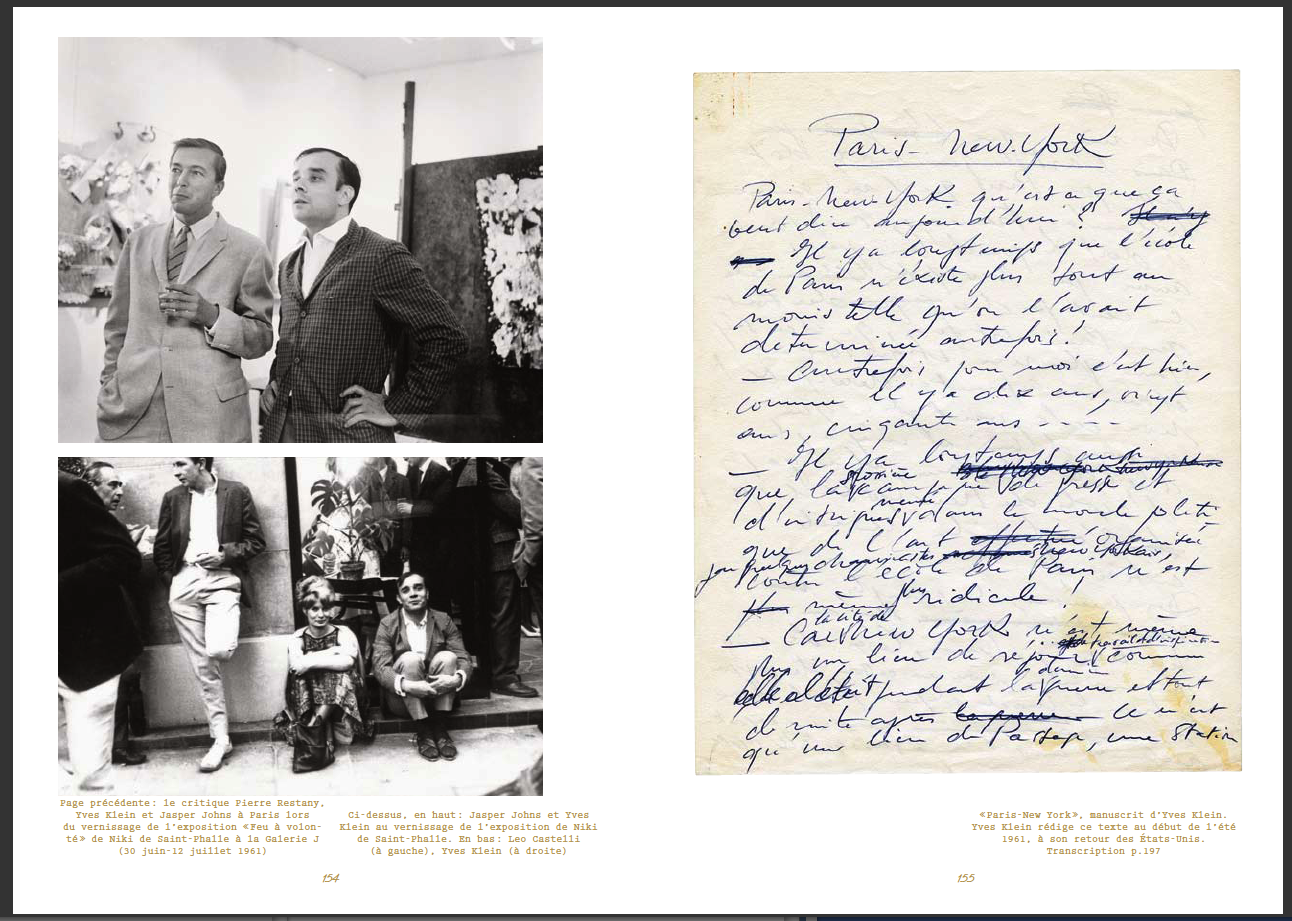 Page précédente: le critique Pierre Restany,
Yves Klein et Jasper Johns à Paris lors
du vernissage de l'exposition «Feu à volon-
té» de Niki de Saint-Phalle à la Galerie J
(30 juin-12 juillet 1961)
Ci-dessus, en haut: Jasper Johns et Yves
Klein au vernissage de l'exposition de Niki
de Saint-Phalle. En bas: Leo Castelli
(à gauche), Yves Klein (à droite)
154
Paris-New-York
Paris-New-York qu'est ce que ça
veut dire aujourd'hui ?
Il y a longtemps que l'école
de Paris n'existe plus tout au
moins telle qu'on l'avait
déterminée autrefois!
— autrefois pour moi c'est hier,
comme il y a dix ans, vingt
ans, cinquante ans ----
— Il y a longtemps aussi
que, la campagne de presse et
d'intrigues menée dans le monde politi-
que de l'art organisée
par quelques chauvinistes new yorkais,
contre l'école de Paris n'est
même plus ridicule !
— Car la cité de New York n'est même
plus un lieu de séjour et de travail et d'inspiration comme
elle l'était pendant la guerre et tout
de suite après Ce n'est
qu'un lieu de Passage, une station
«Paris-New York», manuscrit d'Yves Klein.
Yves Klein rédige ce texte au début de l'été
1961, à son retour des États-Unis.
Transcription p.197
155